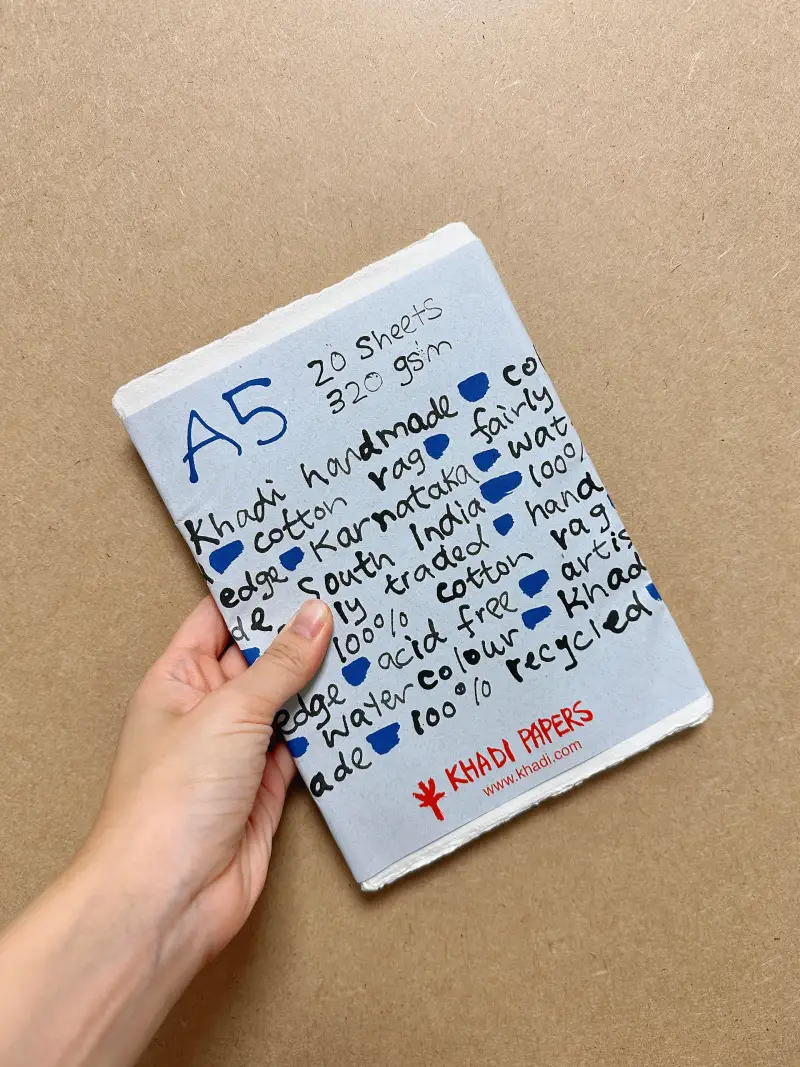 A5
20 sheets
320 gsm
Khadi handmade co
cotton rag fairly
edge Karnataka wat
de, South India 100%
ly traded hand
100% cotton rag
edge acid free artis
watercolour Khad
ade 100% recycled
KHADI PAPERS
www.khadi.com